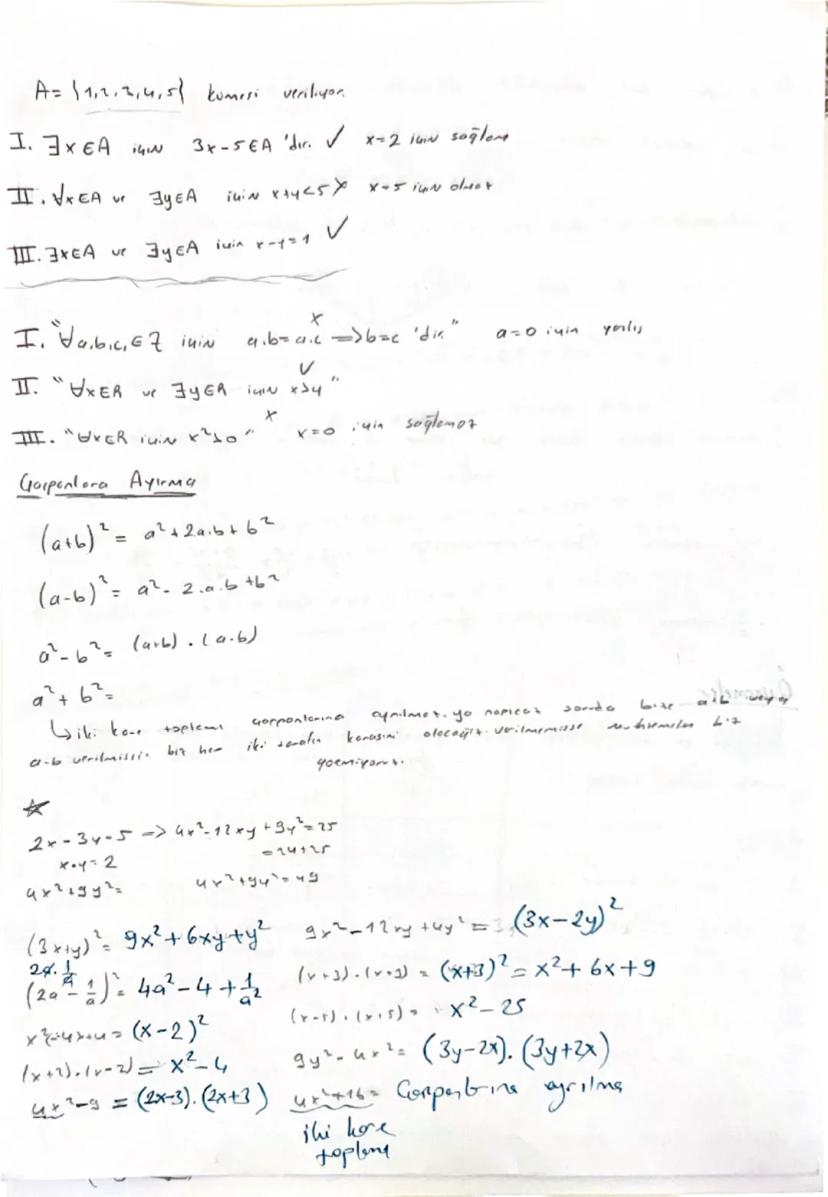 A= {1,2,3,4,5} kümesi veriliyor.
I. ∃x∈A için 3x-5∈A 'dır. ✓ x=2 için sağlanır
II. ∀x∈A ve ∃y∈A için x+y<5 x x=5 için olmaz
III. ∃x∈A ve ∃y∈A için x-y=1 ✓
I. "∀a,b,c,∈Z için a.b=a.c ⟹b=c 'dir." x a=0 için yanlış
II. "∀x∈R ve ∃y∈R için x>y" ✓
III. "∀x∈R için x²>0" x x=0 için sağlamaz
Çarpanlara Ayırma
(a+b)² = a²+2a.b+b²
(a-b)² = a²- 2.a.b+b²
a²-b²= (a+b).(a-b)
a²+b²=
↳ iki kare toplamı çarpanlarına ayrılmaz. ya soruda bize a+b veya
a-b verilmiştir. biz her iki tarafın karesini alacağız. verilmemişse biz
☆
2x-3y=5 => 4x²-12xy+9y²=25
x.y=2 =24+25
4x²+9y²= 4x²+9y²=49
(3x+y)²= 9x²+6xy+y² 9x²-12xy+4y²= (3x-2y)²
2a.1/a
(2a-1/a)²= 4a²-4+1/a² (x+3).(x+3) = (x+3)²=x²+6x+9
x²-4x+4= (x-2)² (x-5).(x+5)= x²-25
(x+2).(x-2)= x²-4 9y²-4x²= (3y-2x).(3y+2x)
4x²-9 = (2x-3).(2x+3) 4x²+16= Çarpanlarına ayrılmaz
iki kare
toplamı